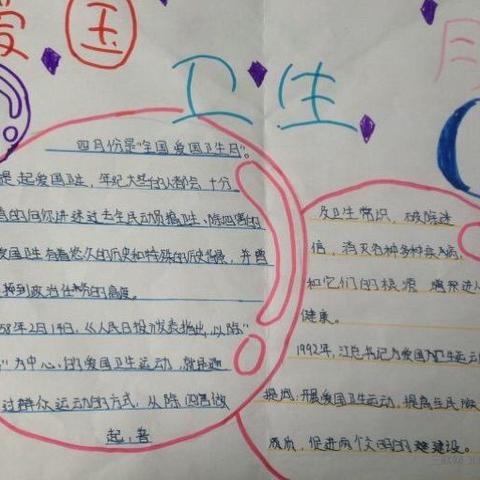 爱国
卫生
月
四月份是"全国爱国卫生日"。
提起爱国卫生,年纪大些的人都会十分
的向你讲述过去全民动员搞卫生、除四害的
爱国卫生有着悠久的历史和特殊的历史
提到政治任务的高度。
58年2月14日,《人民日报》发表指出,以除"
"为中心的爱国卫生运动,就是通
过群众运动的方式,从除四害做
起,
及卫生常识,破除迷
信,消灭各种多种疾病,
和它们的根源
健康。
1992年,江总书记为爱国卫生运动
提高,开展爱国卫生运动,提高全民族
质,促进两个文明的建设。